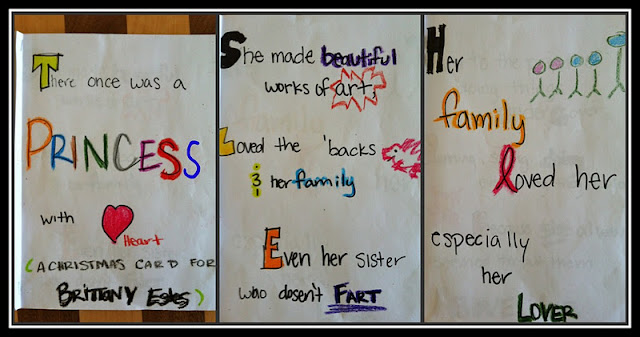 There once was a
PRINCESS
with
Heart
(A CHRISTMAS CARD FOR
BRITTANY Estes)
She made beautiful
works of art,
Loved the 'backs
& her family
Even her sister
who dosen't FART
Her
family
loved her
especially
her
LOVER